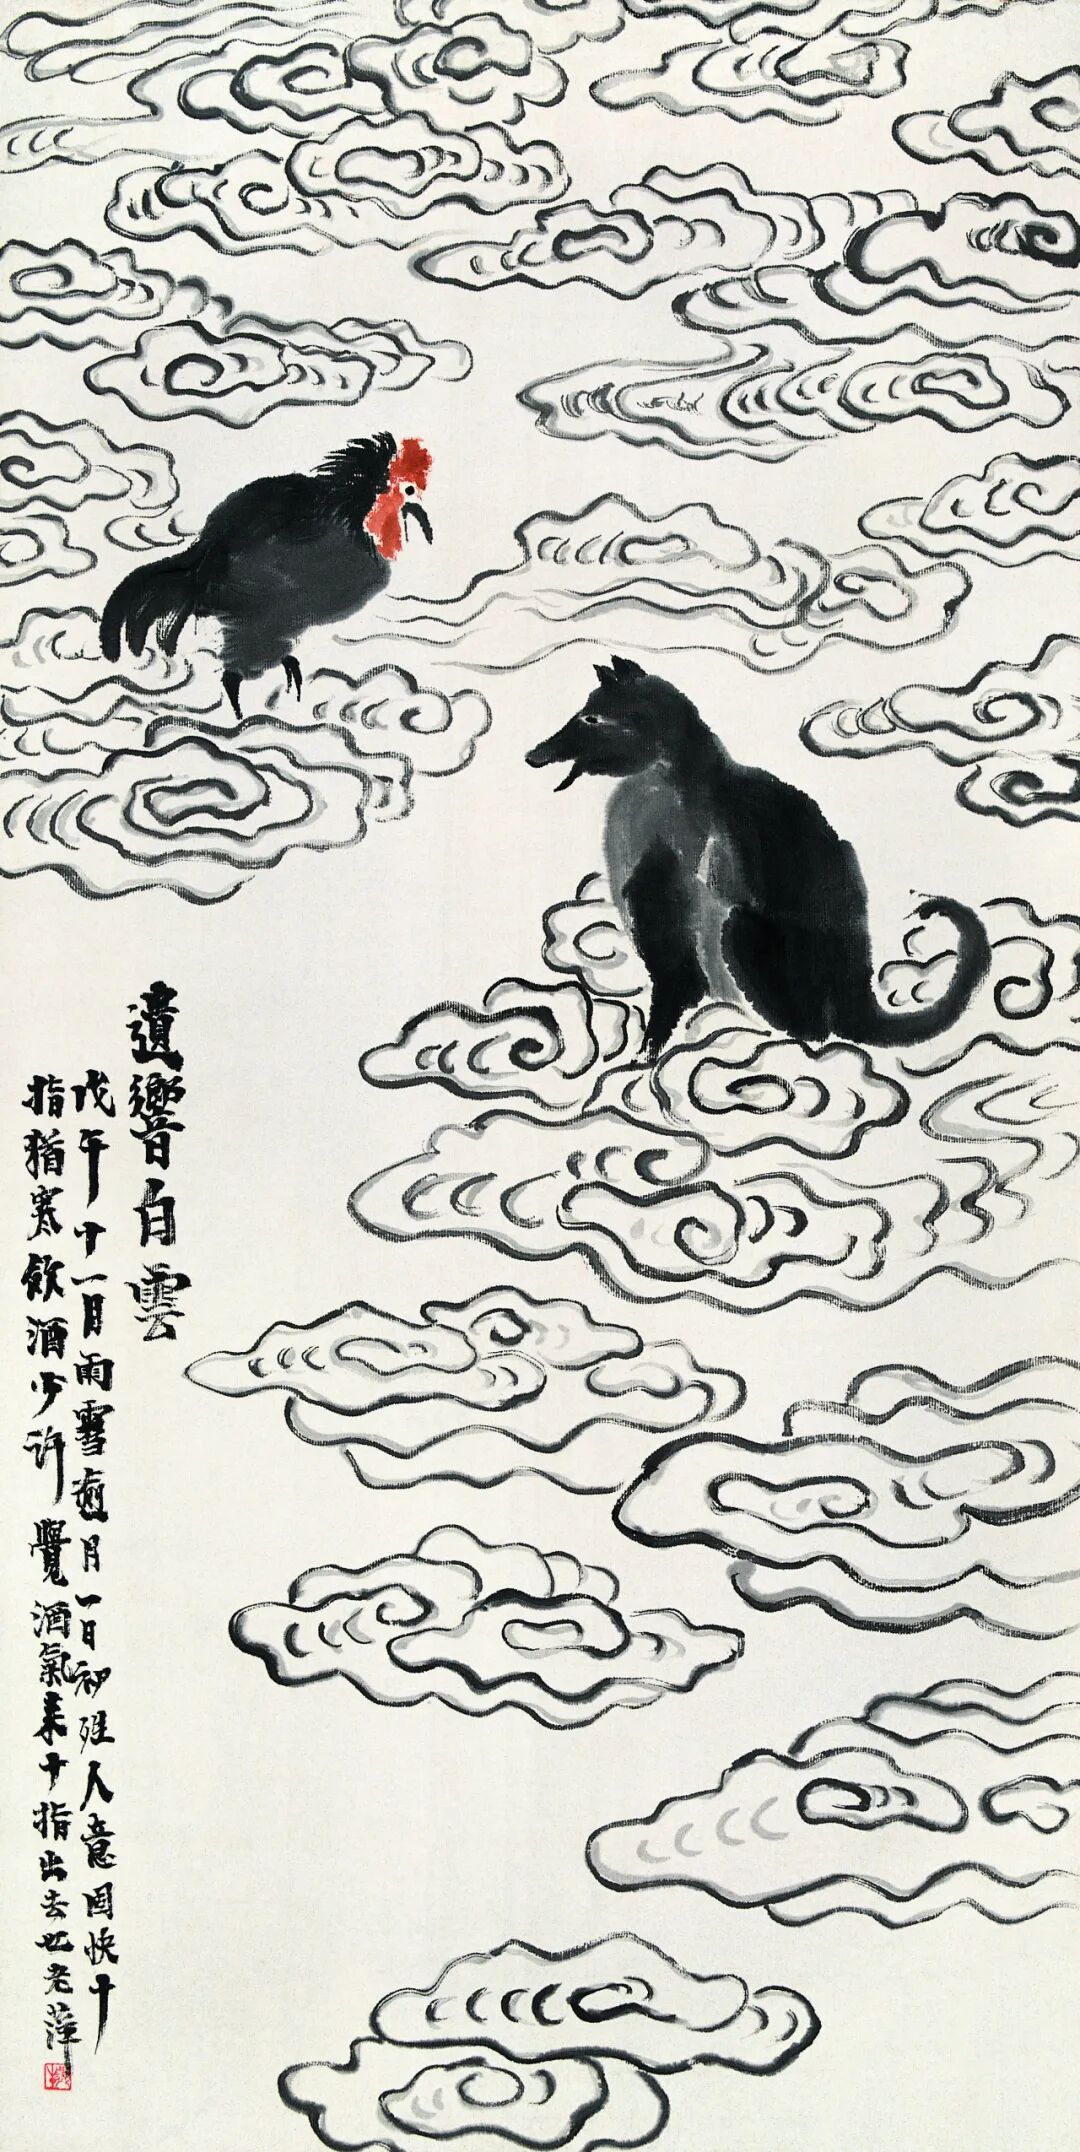 遺響白雲
戊午十一月雨雪逾月一日初夝人意固快十
指猶寒飲酒少許覺酒氣来十指出去也老萍